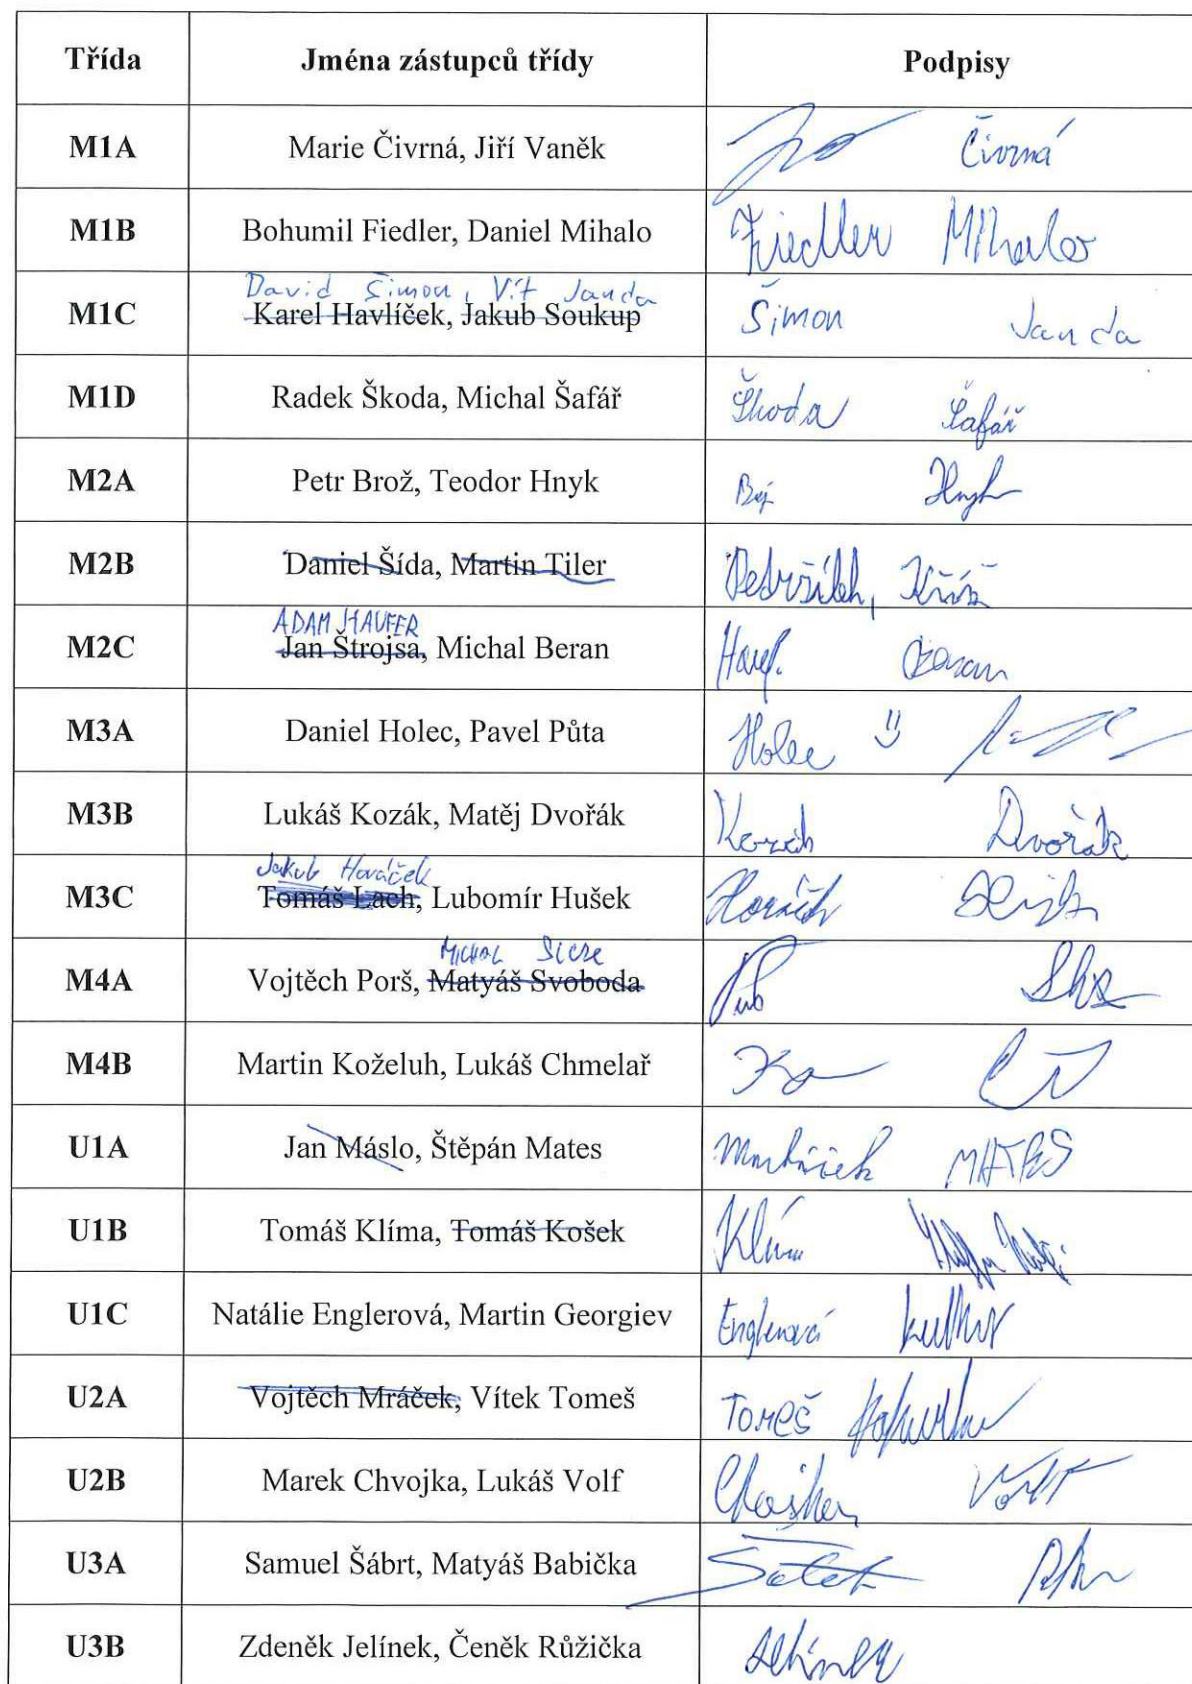 Třída Jména zástupců třídy Podpisy
M1A Marie Čivrná, Jiří Vaněk Čivrná
M1B Bohumil Fiedler, Daniel Mihalo Fiedler Mihalo
David Šimon, Vít Janda
M1C Karel Havlíček, Jakub Soukup Šimon Janda
M1D Radek Škoda, Michal Šafář Škoda Šafář
M2A Petr Brož, Teodor Hnyk Hnyk
M2B Daniel Šída, Martin Tiler Petržílek, Kříž
ADAM HAUFER
M2C Jan Štrojsa, Michal Beran Hauf. Beran
M3A Daniel Holec, Pavel Půta Holec
M3B Lukáš Kozák, Matěj Dvořák Kozák Dvořák
Jakub Horáček
M3C Tomáš Lach, Lubomír Hušek Horáček
MICHAL
M4A Vojtěch Porš, Matyáš Svoboda
M4B Martin Koželuh, Lukáš Chmelař
U1A Jan Máslo, Štěpán Mates MATES
U1B Tomáš Klíma, Tomáš Košek Klíma
U1C Natálie Englerová, Martin Georgiev Englerová
U2A Vojtěch Mráček, Vítek Tomeš Tomeš
U2B Marek Chvojka, Lukáš Volf Chvojka Volf
U3A Samuel Šábrt, Matyáš Babička
U3B Zdeněk Jelínek, Čeněk Růžička Jelínek